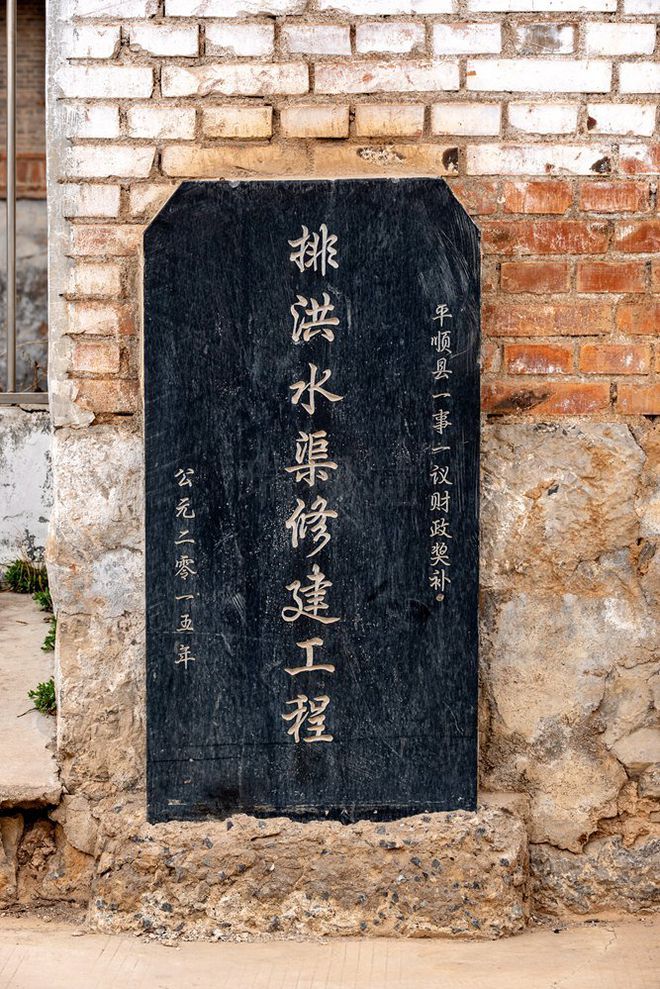 平顺县一事一议财政奖补
排洪水渠修建工程
公元二零一五年